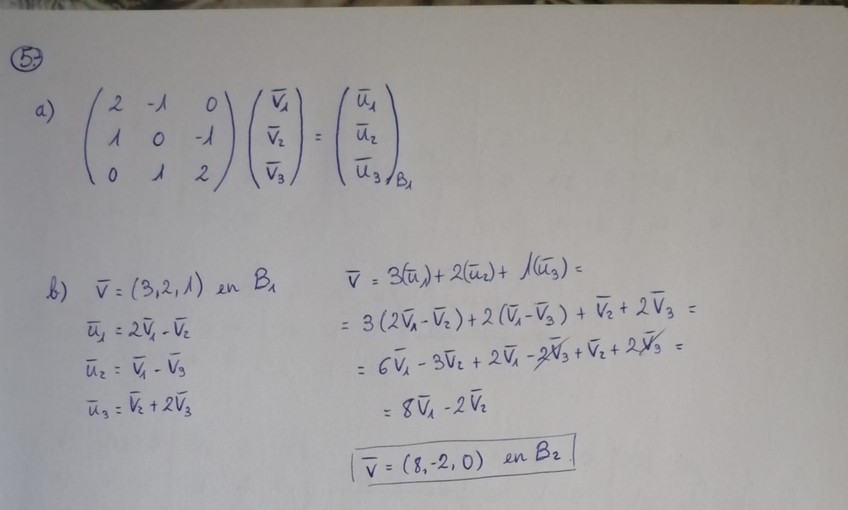 5.
a) ( 2 -1 0 ) ( v̅₁ ) ( u̅₁ )
( 1 0 -1 ) ( v̅₂ ) = ( u̅₂ )
( 0 1 2 ) ( v̅₃ ) ( u̅₃ ) B₁
b) v̅ = (3,2,1) en B₁
u̅₁ = 2v̅₁ - v̅₂
u̅₂ = v̅₁ - v̅₃
u̅₃ = v̅₂ + 2v̅₃
v̅ = 3(u̅₁) + 2(u̅₂) + 1(u̅₃) =
= 3(2v̅₁ - v̅₂) + 2(v̅₁ - v̅₃) + v̅₂ + 2v̅₃ =
= 6v̅₁ - 3v̅₂ + 2v̅₁ - 2v̅₃ + v̅₂ + 2v̅₃ =
= 8v̅₁ - 2v̅₂
v̅ = (8,-2,0) en B₂